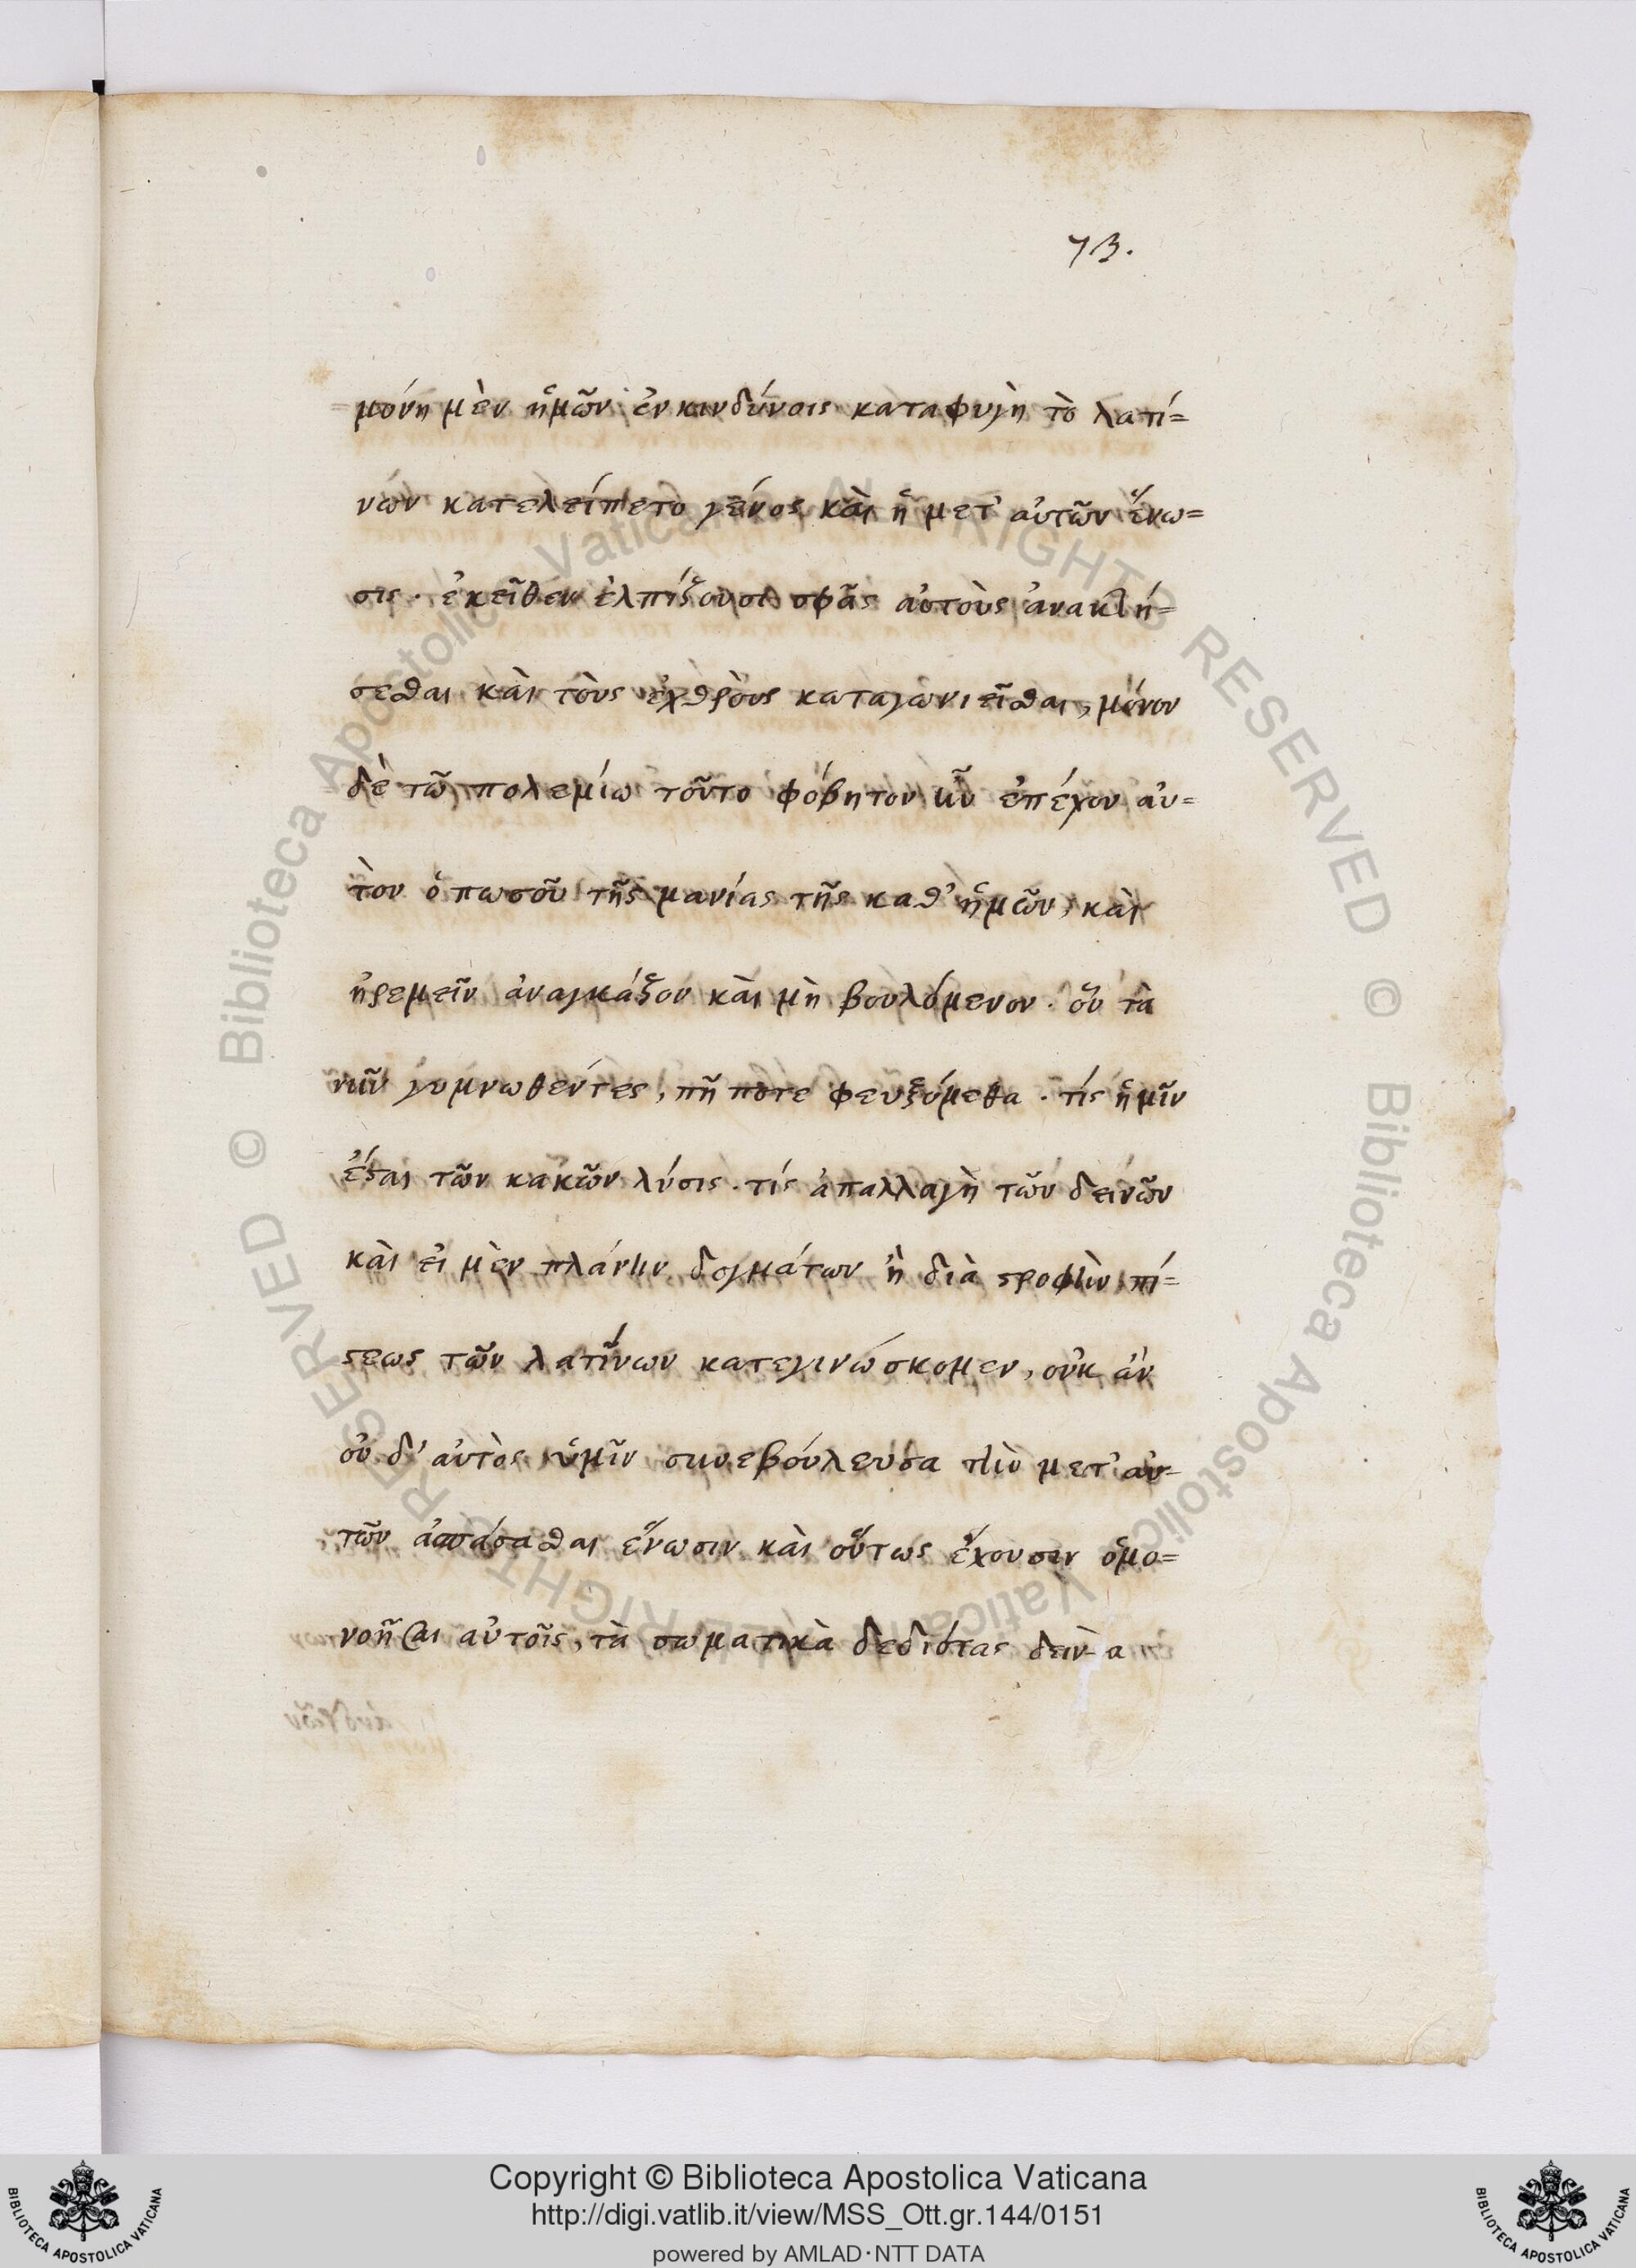 73.
μόνη μὲν ἡμῶν ἐν κινδύνοις καταφυγὴ τὸ λατί=
νων κατελείπετο γένος καὶ ἡ μετ' αὐτῶν ἕνω=
σις· ἐκεῖθεν ἐλπίζουσι σφᾶς αὐτοὺς ἀνακλή=
σεσθαι καὶ τοὺς ἐχθροὺς καταγωνιεῖσθαι, μόνον
δὲ τῶ πολεμίω τοῦτο φόβητον ἦν ἐπέχον αὐ=
τὸν ὁπωσοῦν τῆς μανίας τῆς καθ' ἡμῶν, καὶ
ἠρεμεῖν ἀναγκάζον καὶ μὴ βουλόμενον· οὗ τὰ
νῦν γυμνωθέντες, πῆ ποτε φευξόμεθα· τίς ἡμῖν
ἔσται τῶν κακῶν λύσις· τίς ἀπαλλαγὴ τῶν δεινῶν
καὶ εἰ μὲν πλάνην δογμάτων ἢ διαστροφὴν πί=
στεως τῶν λατίνων κατεγινώσκομεν, οὐκ ἂν
οὐδ' αὐτὸς ὑμῖν συνεβούλευσα τὴν μετ' αὐ=
τῶν ἀσπάσασθαι ἕνωσιν καὶ οὕτως ἔχουσιν ὁμο=
νοῆσαι αὐτοῖς, τὰ σωματικὰ δεδιότας δεινὰ
Copyright © Biblioteca Apostolica Vaticana
http://digi.vatlib.it/view/MSS_Ott.gr.144/0151
powered by AMLAD·NTT DATA
BIBLIOTECA APOSTOLICA VATICANA
BIBLIOTECA APOSTOLICA VATICANA